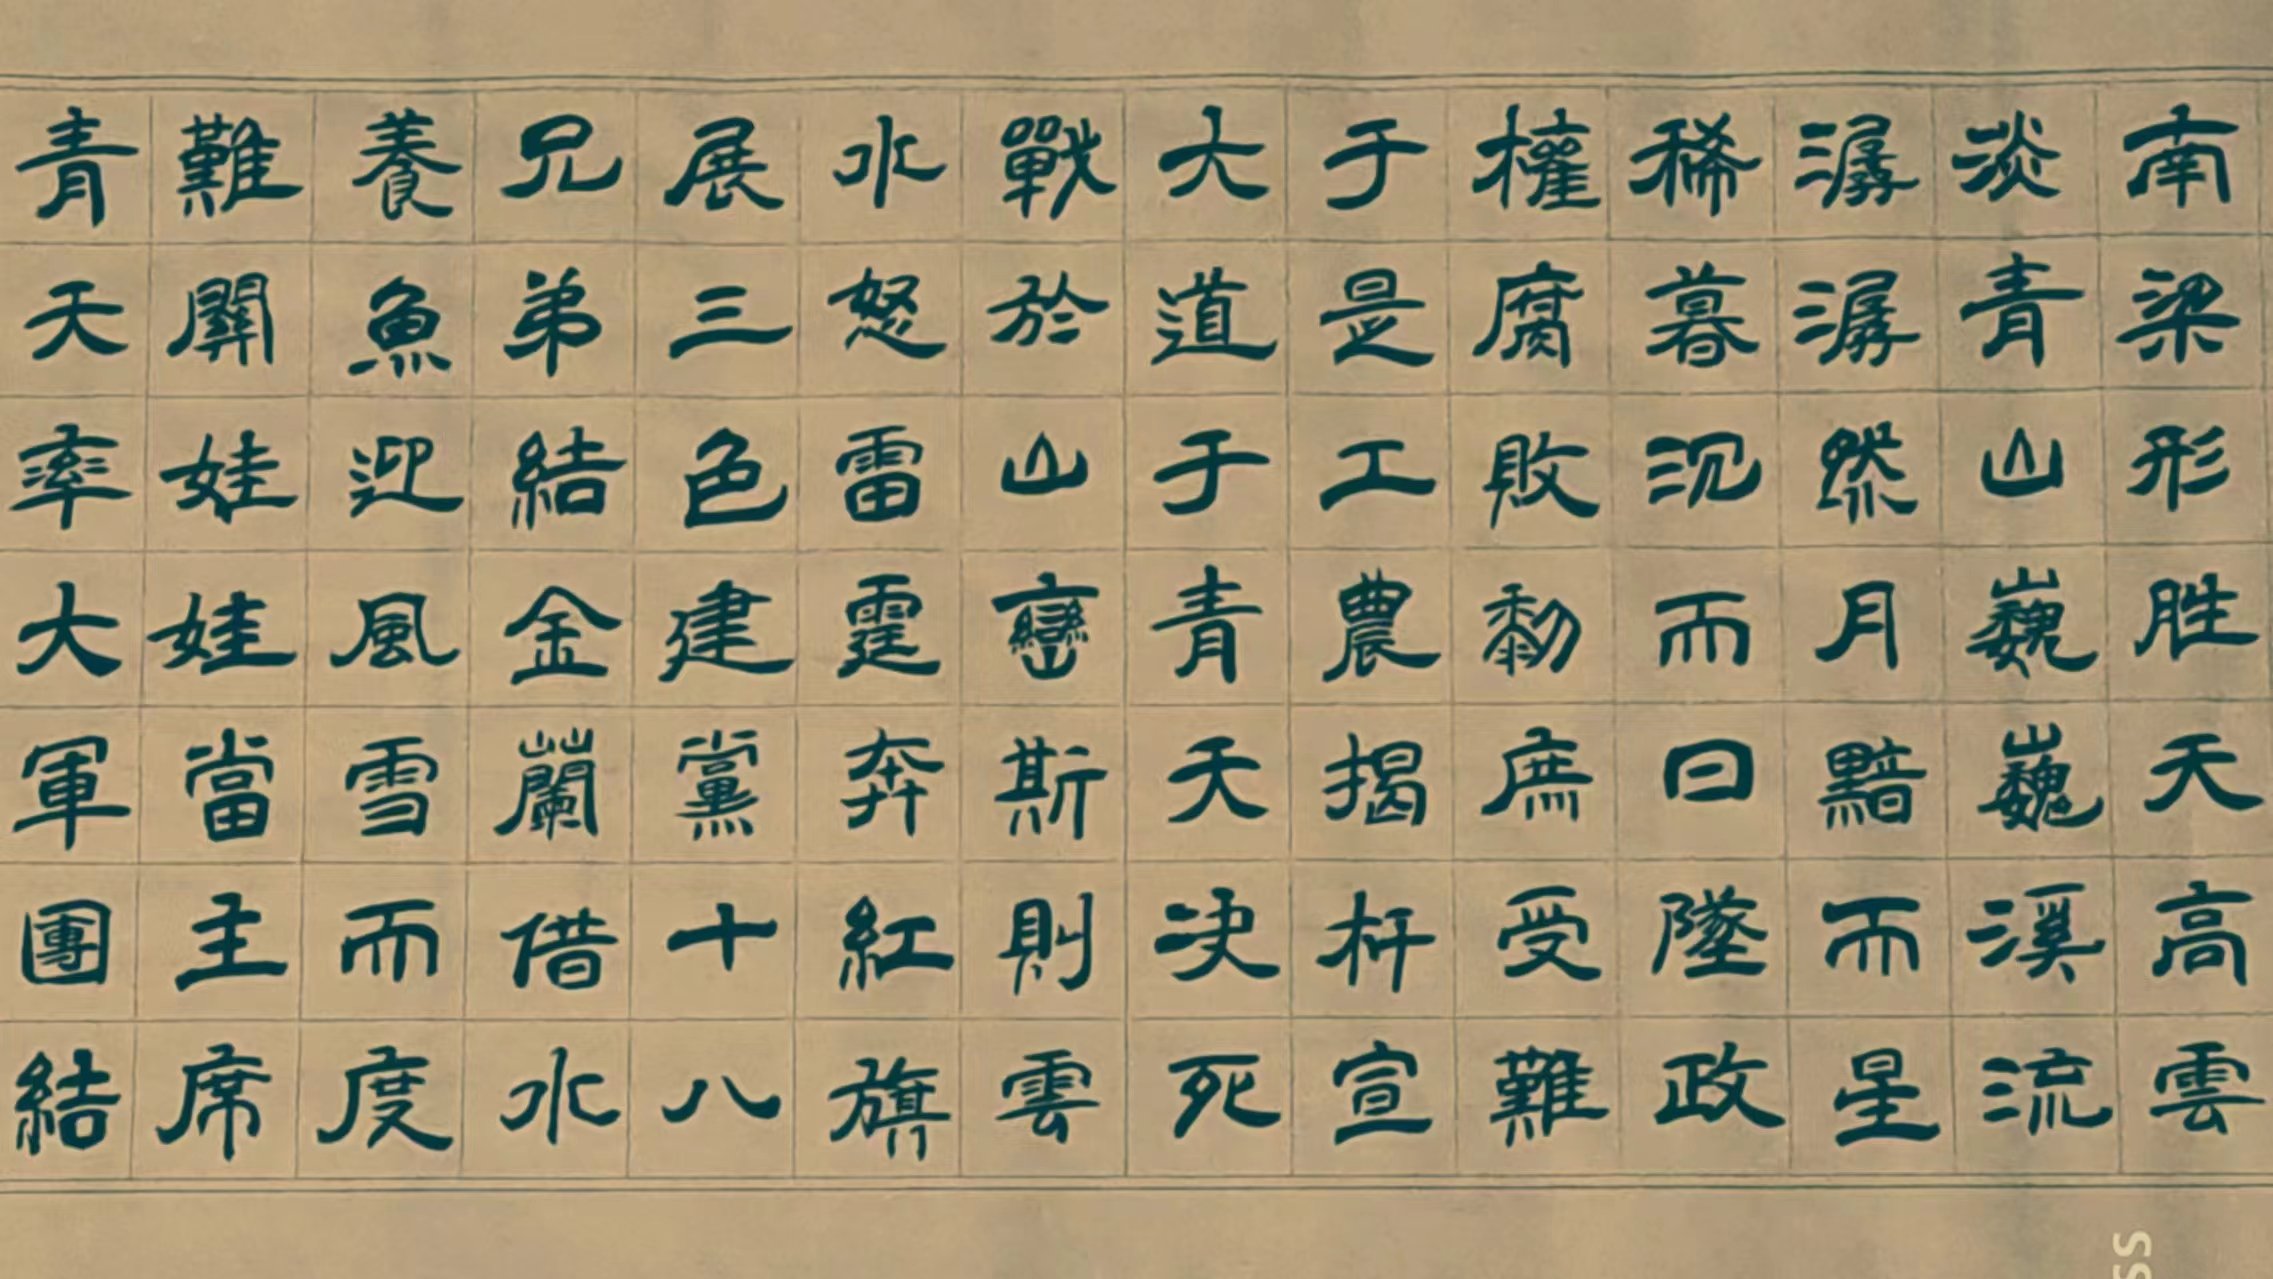 南梁形胜天高雲
淡青山巍巍溪流
潺潺然月黯而星
稀暮沉而日墜政
權腐敗黎庶受難
于是工農揭杆宣
大道于青天决死
戰於山巒斯則雲
水怒雷霆奔紅旗
展三色建黨十八
兄弟結金蘭借水
養魚迎風雪而度
難關娃娃當主席
青天率大軍團結